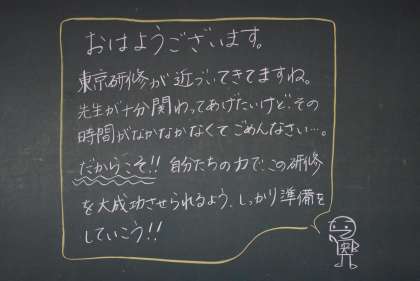 おはようございます。
東京研修が近づいてきてますね。
先生が十分関わってあげたいけど、その
時間がなかなかなくてごめんなさい…。
だからこそ!! 自分たちの力でこの研修
を大成功させられるよう、しっかり準備を
していこう!!